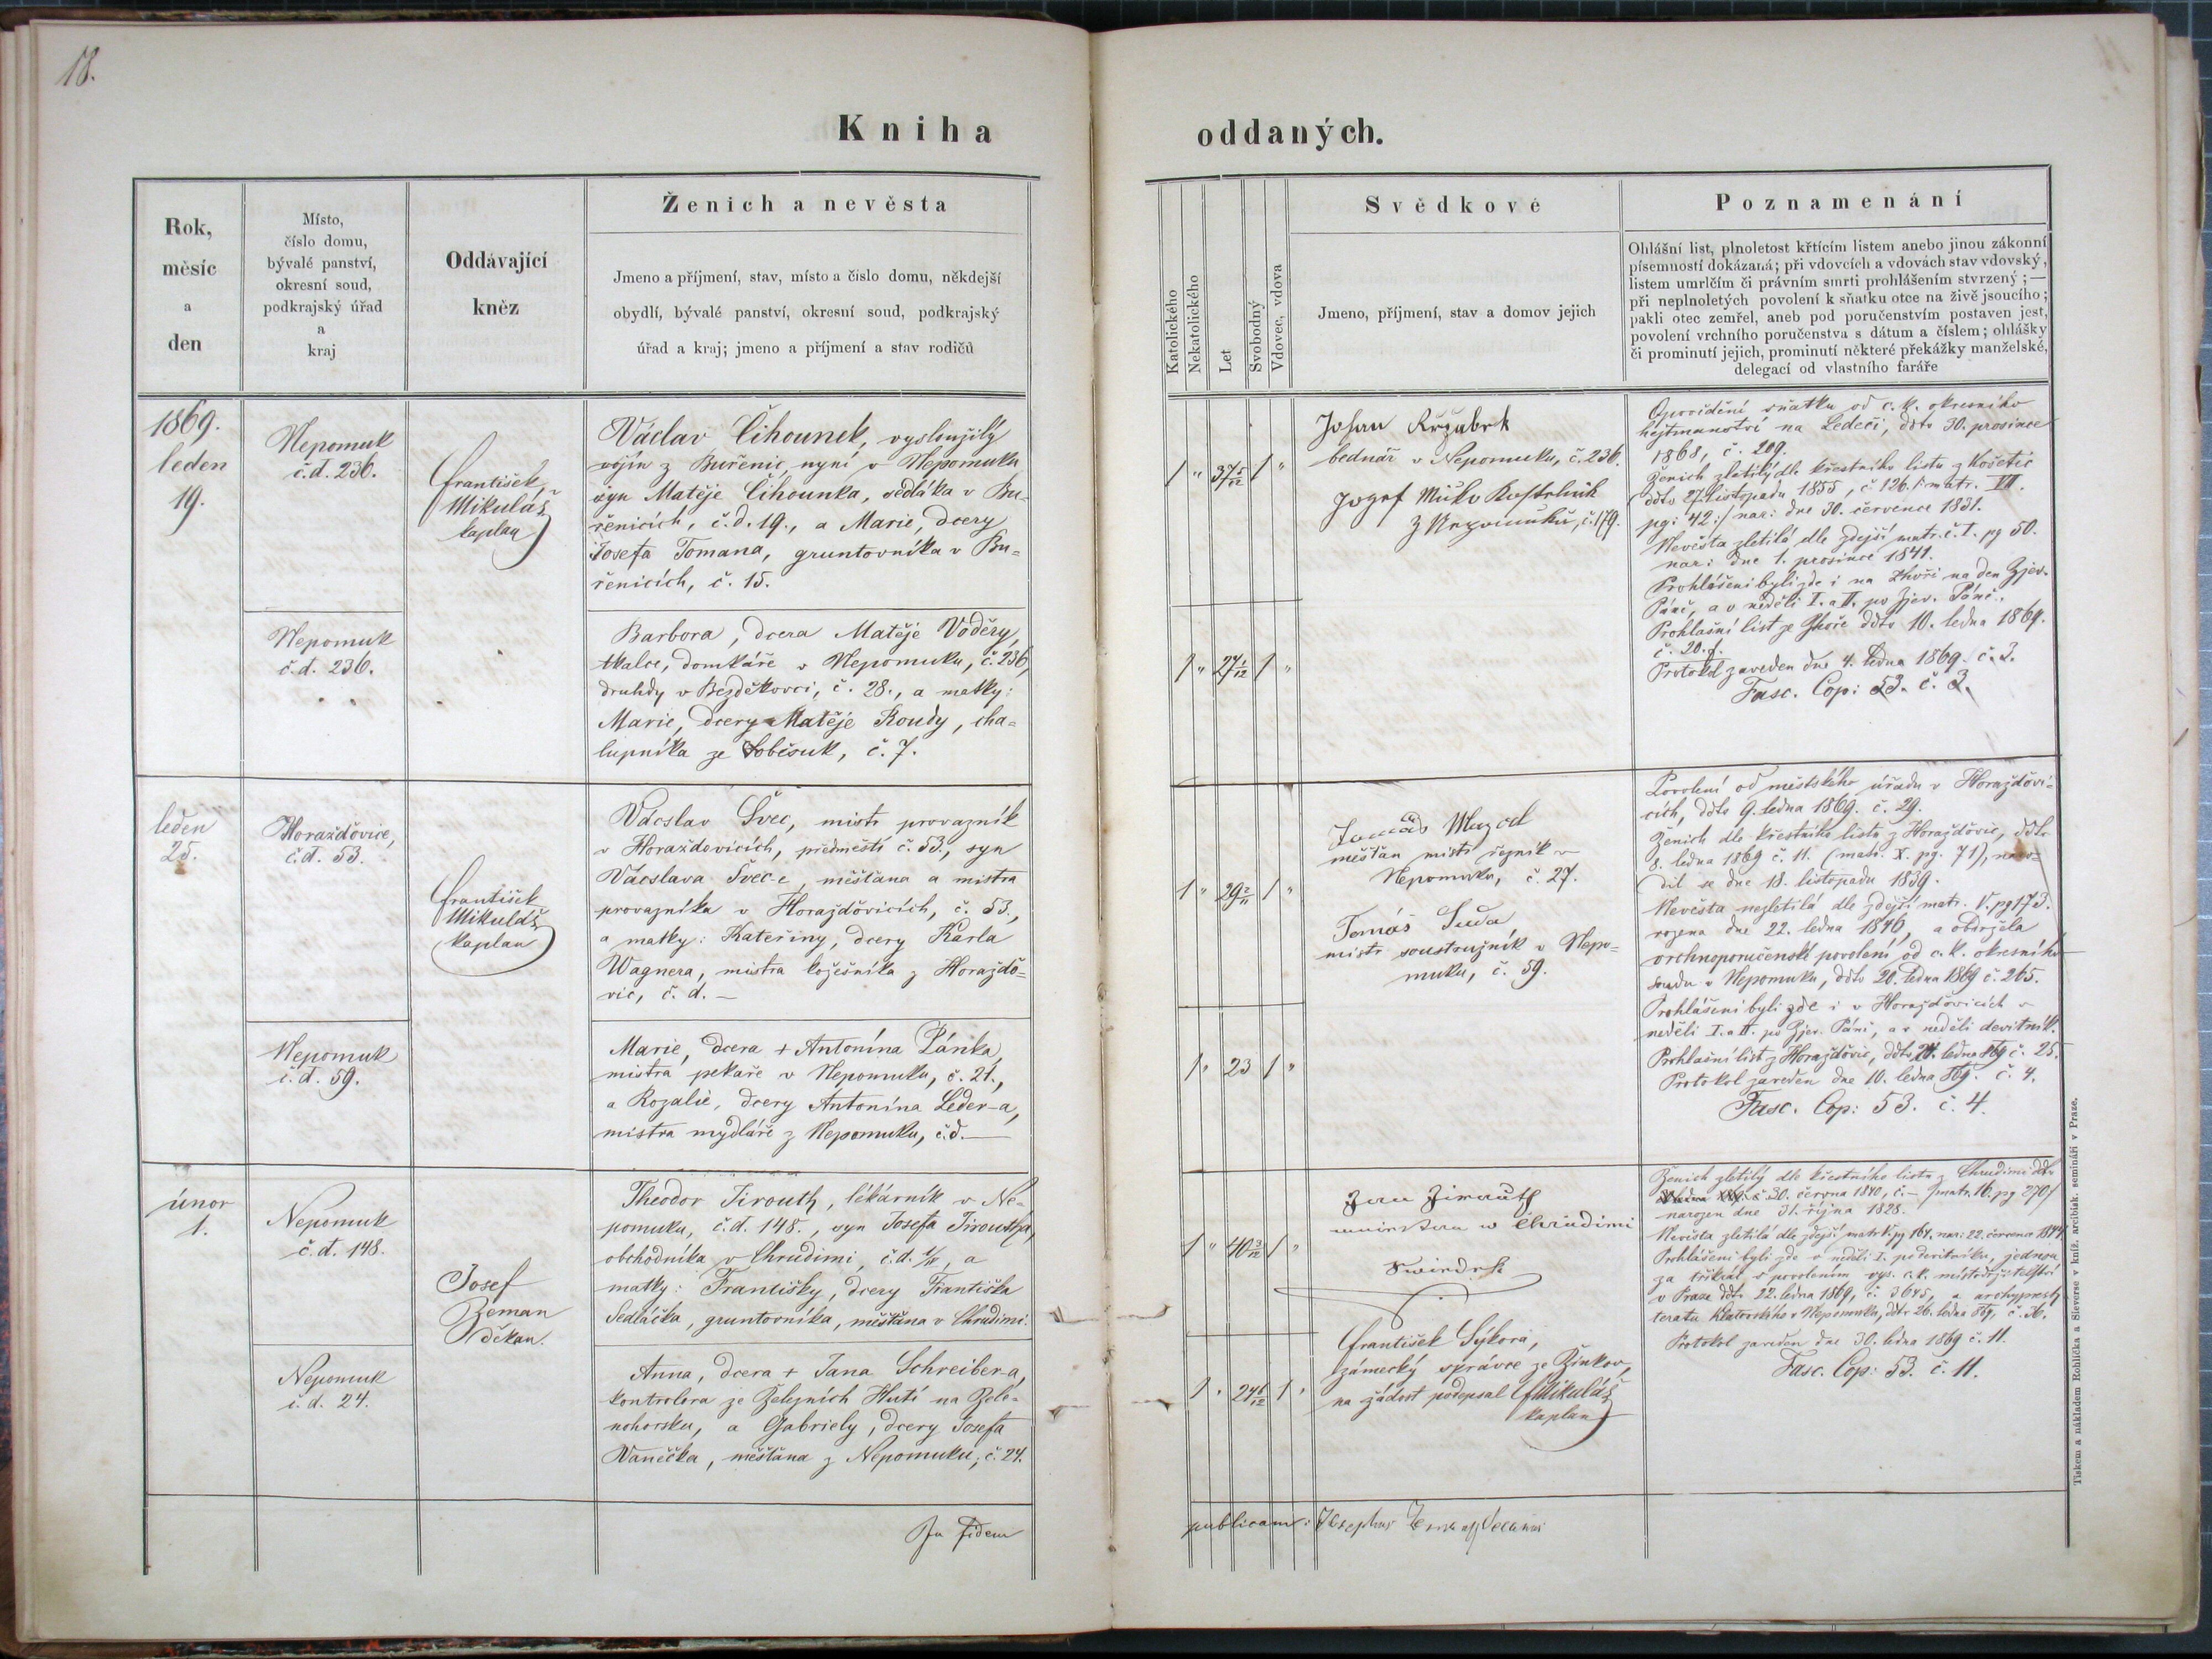 18.
Kniha
oddaných.
Rok,
měsíc
a
den
Místo,
číslo domu,
bývalé panství,
okresní soud,
podkrajský úřad
a
kraj
Oddávající
kněz
Ženich a nevěsta
Jmeno a příjmení, stav, místo a číslo domu, někdejší
obydlí, bývalé panství, okresní soud, podkrajský
úřad a kraj; jmeno a příjmení a stav rodičů
Katolického
Nekatolického
Let
Svobodný
Vdovec, vdova
Svědkové
Jmeno, příjmení, stav a domov jejich
Poznamenání
Ohlášní list, plnoletost křtícím listem anebo jinou zákonní
písemností dokázaná; při vdovcích a vdovách stav vdovský,
listem umrlčím či právním smrti prohlášením stvrzený; —
při neplnoletých povolení k sňatku otce na živě jsoucího;
pakli otec zemřel, aneb pod poručenstvím postaven jest,
povolení vrchního poručenstva s dátum a číslem; ohlášky
či prominutí jejich, prominutí některé překážky manželské,
delegací od vlastního faráře
1869.
leden
19.
Nepomuk
č.d. 236.
František
Mikuláš
kaplan
Václav Čihounek, vysloužilý
vojín z Buřenic, nyní v Nepomuku
syn Matěje Čihounka, sedláka v Bu-
řenicích, č.d. 19., a Marie, dcery
Josefa Tomana, gruntovníka v Bu-
řenicích, č. 15.
1 " 37 5/12 1 "
Johan
bednář v Nepomuku, č. 236.
Jozef
z Nepomuku, č. 179.
Opovědění sňatku od c.k. okresního
hejtmanství na Ledeči, ddto 30. prosince
1868, č. 209.
Ženich zletilý dle křestního listu z Košetic
ddto 27. listopadu 1855, č. 126. /: matr. VII.
pg: 42 :/ nar: dne 30. července 1831.
Nevěsta zletilá dle zdejší matr. č. I. pg 50.
nar: dne 1. prosince 1841.
Prohlášeni byli zde i na Zhoři na den Zjev.
Páně, a v neděli I. a II. po Zjev. Páně.
Prohlašní list ze Zhoře ddto 10. ledna 1869.
č. 20.
Protokol zaveden dne 4. ledna 1869. č. 3.
Fasc. Cop: 53. č. 3.
Nepomuk
č.d. 236.
Barbora, dcera Matěje Voděry
tkalce, domkáře v Nepomuku, č. 236,
druhdy v Bezděkovci, č. 28., a matky:
Marie, dcery Matěje Roudy, cha-
lupníka ze Soběsuk, č. 7.
1 " 27 1/12 1 "
leden
25.
Horažďovice,
č.d. 53.
František
Mikuláš
kaplan
Vácslav Švec, mistr provazník
v Horaždovicích, předměstí č. 53., syn
Václava Švec-e, měšťana a mistra
provazníka v Horažďovicích, č. 53.,
a matky: Kateřiny, dcery Karla
Wagnera, mistra kožešníka z Horaždo-
vic, č. d. —
1 " 29 2/12 1 "
měšťan mistr řezník v
Nepomuku, č. 27.
Tomáš Suda
mistr soustružník v Nepo-
muku, č. 59.
Povolení od městského úřadu v Horažďovi-
cích, ddto 9. ledna 1869. č. 29.
Ženich dle křestního listu z Horažďovic, ddto
8. ledna 1869 č. 11. (matr. X. pg. 71), naro-
dil se dne 18. listopadu 1839.
Nevěsta nezletilá dle zdejší matr. V. pg 173.
rozena dne 22. ledna 1846, a obdržela
vrchnoporučenské povolení od c.k. okresního
soudu v Nepomuku, ddto 20. ledna 1869 č. 265.
Prohlášeni byli zde i v Horažďovicích v
neděli I. a II. po Zjev. Páně, a v neděli devítník.
Prohlašní list z Horažďovic, ddto 24. ledna 869 č. 25.
Protokol zaveden dne 10. ledna 869. č. 4.
Fasc. Cop: 53. č. 4.
Nepomuk
č.d. 59.
Marie, dcera + Antonína Párika
mistra pekaře v Nepomuku, č. 21.,
a Rozalie, dcery Antonína Leder-a,
mistra mydláře z Nepomuku, č.d. —
1 " 23 1 "
únor
1.
Nepomuk
č.d. 148.
Josef
Zeman
děkan.
Theodor Jirouth, lékárník v Ne-
pomuku, č.d. 148., syn Josefa Jirouth-a,
obchodníka v Chrudimi, č.d. 1/IV, a
matky: Františky, dcery Františka
Sedláčka, gruntovníka, měšťana v Chrudimi.
1 " 40 3/12 1 "
Jan Jirauth
w Chrudimi
František Sýkora,
zámecký správce ze Žinkov,
na žádost podepsal F. Mikuláš
kaplan
Ženich zletilý dle křestního listu z Chrudimi ddto
20. června 1840, č. — /matr. 16. pg 270/
narozen dne 31. října 1828.
Nevěsta zletilá dle zdejší matr. V. pg 164. nar: 22. července 1844.
Prohlášeni byli zde v neděli I. po devítníku, jednou
za třikrát s povolením vys. c.k. místodržitelství
v Praze ddto 22. ledna 1869, č. 3645, a archypresby
teratu Klatovského v Nepomuku, ddto 26. ledna 869, č. 36.
Protokol zaveden dne 30. ledna 1869 č. 11.
Fasc. Cop: 53. č. 11.
Nepomuk
č. d. 24.
Anna, dcera + Jana Schreiber-a,
kontrolora ze Železních Hutí na Zele-
nohorsku, a Gabriely, dcery Josefa
Vaněčka, měšťana z Nepomuku, č. 24.
1 " 24 6/12 1 "
In fidem
publicam: Josephus Zeman Decanus
Tiskem a nákladem Rohlíčka a Sieverse v kníž. arcibisk. semináři v Praze.